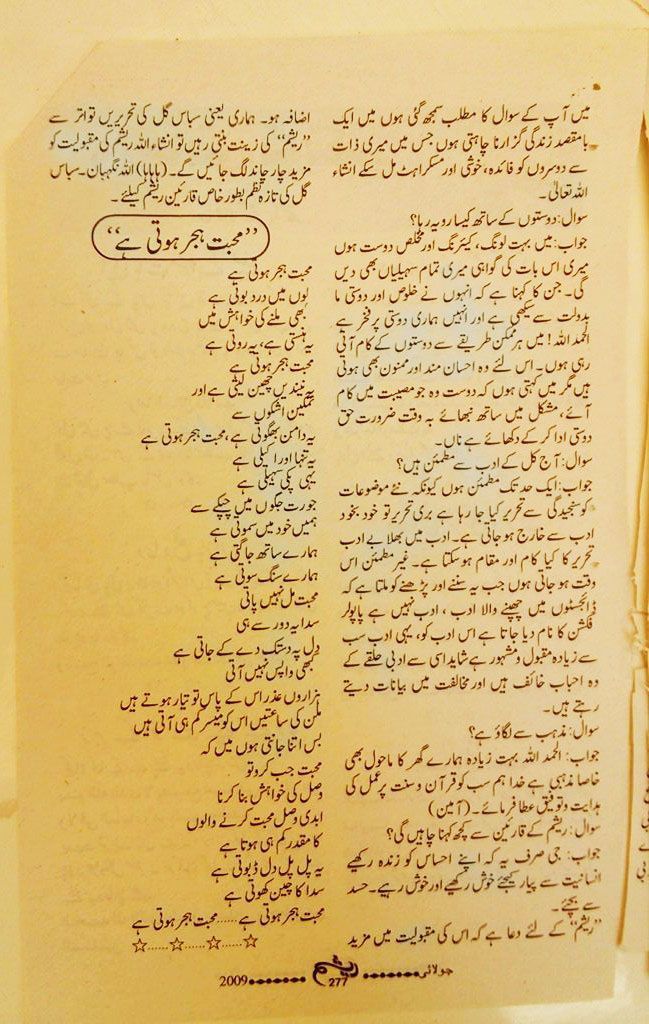 میں آپ کے سوال کا مطلب سمجھ گئی ہوں میں ایک
بامقصد زندگی گزارنا چاہتی ہوں جس میں میری ذات
سے دوسروں کو فائدہ، خوشی اور مسکراہٹ مل سکے انشاء
اللہ تعالیٰ۔
سوال: دوستوں کے ساتھ کیسا رویہ رہا؟
جواب: میں بہت لونگ، کیئرنگ اور مخلص دوست ہوں
میری اس بات کی گواہی میری تمام سہیلیاں بھی دیں
گی۔ جن کا کہنا ہے کہ انہوں نے خلوص اور دوستی ما
بدولت سے سیکھی ہے اور انہیں ہماری دوستی پر فخر ہے
الحمد اللہ! میں ہر ممکن طریقے سے دوستوں کے کام آتی
رہی ہوں۔ اس لئے وہ احسان مند اور ممنون بھی ہوتی
ہیں مگر میں کہتی ہوں کہ دوست وہ جو مصیبت میں کام
آئے، مشکل میں ساتھ نبھائے بہ وقت ضرورت حق
دوستی ادا کر کے دکھائے ہے ناں۔
سوال: آج کل کے ادب سے مطمئن ہیں؟
جواب: ایک حد تک مطمئن ہوں کیونکہ نئے موضوعات
کو سنجیدگی سے تحریر کیا جا رہا ہے بری تحریر تو خود بخود
ادب سے خارج ہو جاتی ہے۔ ادب میں بھلا بے ادب
تحریر کا کیا کام اور مقام ہو سکتا ہے۔ غیر مطمئن اس
وقت ہو جاتی ہوں جب یہ سننے اور پڑھنے کو ملتا ہے کہ
ڈائجسٹوں میں چھپنے والا ادب، ادب نہیں ہے پاپولر
فکشن کا نام دیا جاتا ہے اس ادب کو، یہی ادب سب
سے زیادہ مقبول و مشہور ہے شاید اسی سے ادبی حلقے کے
وہ احباب خائف ہیں اور مخالفت میں بیانات دیتے
رہتے ہیں۔
سوال: مذہب سے لگاؤ ہے؟
جواب: الحمد اللہ بہت زیادہ ہمارے گھر کا ماحول بھی
خاصا مذہبی ہے خدا ہم سب کو قرآن و سنت پر عمل کی
ہدایت و توفیق عطا فرمائے۔ (آمین)
سوال: ریشم کے قارئین سے کچھ کہنا چاہیں گی؟
جواب: جی صرف یہ کہ اپنے احساس کو زندہ رکھیے
انسانیت سے پیار کیجئے خوش رکھیے اور خوش رہیے۔ حسد
سے بچئے۔
”ریشم“ کے لئے دعا ہے کہ اس کی مقبولیت میں مزید
اضافہ ہو۔ ہماری یعنی سباس گل کی تحریریں تواتر سے
”ریشم“ کی زینت بنتی رہیں تو انشاء اللہ ریشم کی مقبولیت کو
مزید چار چاند لگ جائیں گے۔ (ہاہاہا) اللہ نگہبان۔ سباس
گل کی تازہ نظم بطور خاص قارئین ریشم کیلئے۔
”محبت ہجر ہوتی ہے“
محبت ہجر ہوتی ہے
لبوں میں درد بوتی ہے
کبھی ملنے کی خواہش میں
یہ ہنستی ہے، یہ روتی ہے
محبت ہجر ہوتی ہے
یہ نیندیں چھین لیتی ہے اور
نمکین اشکوں سے
یہ دامن بھگوتی ہے، محبت ہجر ہوتی ہے
یہ تنہا اور اکیلی ہے
یہی پکی سہیلی ہے
جو رت جگوں میں چپکے سے
ہمیں خود میں سموتی ہے
ہمارے ساتھ جاگتی ہے
ہمارے سنگ سوتی ہے
محبت مل نہیں پاتی
سدا یہ دور سے ہی
دل پہ دستک دے کے جاتی ہے
کبھی واپس نہیں آتی
ہزاروں عذر اس کے پاس تو تیار ہوتے ہیں
ملن کی ساعتیں اس کو میسر کم ہی آتی ہیں
بس اتنا جانتی ہوں میں کہ
محبت جب کرو تو
وصل کی خواہش بنا کرنا
ابدی وصل محبت کرنے والوں
کا مقدر کم ہی ہوتا ہے
یہ پل پل دل ڈبوتی ہے
سدا کا چین کھوتی ہے
محبت ہجر ہوتی ہے ...... محبت ہجر ہوتی ہے
☆......☆......☆......☆
جولائی ریشم 277 2009